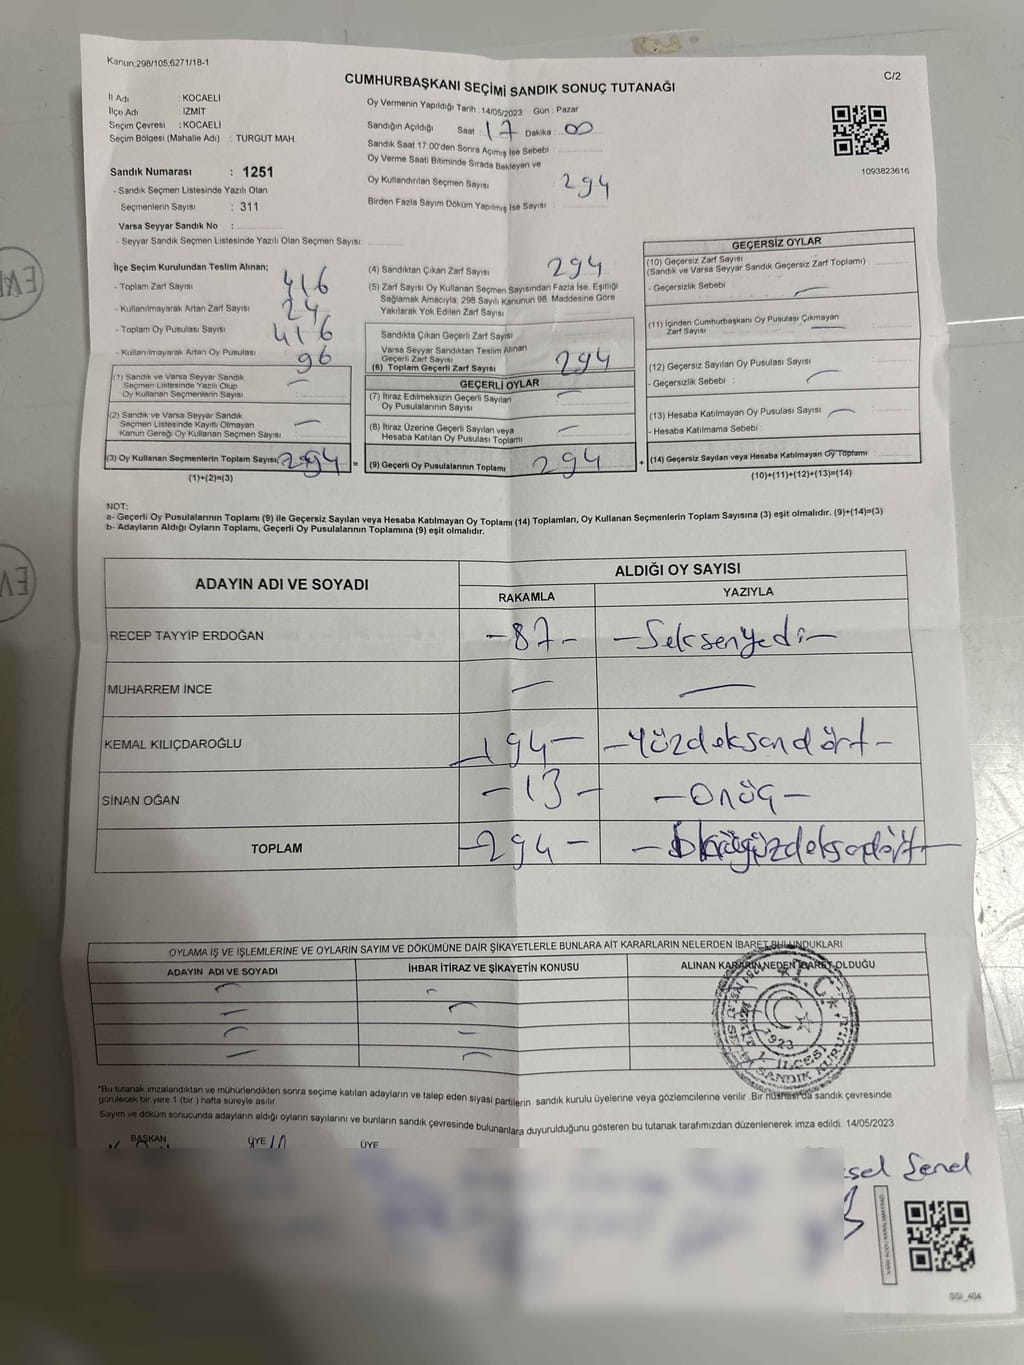 Kanun;298/105;6271/18-1
C/2
CUMHURBAŞKANI SEÇİMİ SANDIK SONUÇ TUTANAĞI
İl Adı : KOCAELİ
İlçe Adı : İZMİT
Seçim Çevresi : KOCAELİ
Seçim Bölgesi (Mahalle Adı) : TURGUT MAH.
Sandık Numarası : 1251
- Sandık Seçmen Listesinde Yazılı Olan
Seçmenlerin Sayısı : 311
Varsa Seyyar Sandık No :
- Seyyar Sandık Seçmen Listesinde Yazılı Olan Seçmen Sayısı:
Oy Vermenin Yapıldığı Tarih : 14/05/2023 Gün : Pazar
Sandığın Açıldığı Saat : 17 Dakika : 00
Sandık Saat 17.00'den Sonra Açımış İse Sebebi :
Oy Verme Saati Bitiminde Sırada Bekleyen ve
Oy Kullandırılan Seçmen Sayısı : 294
Birden Fazla Sayım Döküm Yapılmış İse Sayısı :
1093823616
İlçe Seçim Kurulundan Teslim Alınan;
- Toplam Zarf Sayısı : 416
- Kullanılmayarak Artan Zarf Sayısı : 24
- Toplam Oy Pusulası Sayısı : 416
- Kullanılmayarak Artan Oy Pusulası : 96
(1) Sandık ve Varsa Seyyar Sandık
Seçmen Listesinde Yazılı Olup
Oy Kullanan Seçmenlerin Sayısı : —
(2) Sandık ve Varsa Seyyar Sandık
Seçmen Listesinde Kayıtlı Olmayan
Kanun Gereği Oy Kullanan Seçmen Sayısı : —
(3) Oy Kullanan Seçmenlerin Toplam Sayısı: 294 =
(1)+(2)=(3)
(4) Sandıktan Çıkan Zarf Sayısı 294
(5) Zarf Sayısı Oy Kullanan Seçmen Sayısından Fazla İse, Eşitliği
Sağlamak Amacıyla; 298 Sayılı Kanunun 98. Maddesine Göre
Yakılarak Yok Edilen Zarf Sayısı :
Sandıkta Çıkan Geçerli Zarf Sayısı :
Varsa Seyyar Sandıktan Teslim Alınan
Geçerli Zarf Sayısı :
(6) Toplam Geçerli Zarf Sayısı : 294
GEÇERLİ OYLAR
(7) İtiraz Edilmeksizin Geçerli Sayılan
Oy Pusulalarının Sayısı : —
(8) İtiraz Üzerine Geçerli Sayılan veya
Hesaba Katılan Oy Pusulası Toplamı : —
(9) Geçerli Oy Pusulalarının Toplamı 294 +
GEÇERSİZ OYLAR
(10) Geçersiz Zarf Sayısı
(Sandık ve Varsa Seyyar Sandık Geçersiz Zarf Toplamı) :
- Geçersizlik Sebebi : —
(11) İçinden Cumhurbaşkanı Oy Pusulası Çıkmayan
Zarf Sayısı :
(12) Geçersiz Sayılan Oy Pusulası Sayısı :
- Geçersizlik Sebebi : —
(13) Hesaba Katılmayan Oy Pusulası Sayısı : —
- Hesaba Katılmama Sebebi :
(14) Geçersiz Sayılan veya Hesaba Katılmayan Oy Toplamı :
(10)+(11)+(12)+(13)=(14)
NOT:
a- Geçerli Oy Pusulalarının Toplamı (9) ile Geçersiz Sayılan veya Hesaba Katılmayan Oy Toplamı (14) Toplamları, Oy Kullanan Seçmenlerin Toplam Sayısına (3) eşit olmalıdır. (9)+(14)=(3)
b- Adayların Aldığı Oyların Toplamı, Geçerli Oy Pusulalarının Toplamına (9) eşit olmalıdır.
ADAYIN ADI VE SOYADI
ALDIĞI OY SAYISI
RAKAMLA YAZIYLA
RECEP TAYYİP ERDOĞAN -87- -Seksenyedi-
MUHARREM İNCE — —
KEMAL KILIÇDAROĞLU -194- -Yüzdoksandört-
SİNAN OĞAN -13- -Onüç-
TOPLAM -294- -ikiyüzdoksandört-
OYLAMA İŞ VE İŞLEMLERİNE VE OYLARIN SAYIM VE DÖKÜMÜNE DAİR ŞİKAYETLERLE BUNLARA AİT KARARLARIN NELERDEN İBARET BULUNDUKLARI
ADAYIN ADI VE SOYADI İHBAR İTİRAZ VE ŞİKAYETİN KONUSU ALINAN KARARIN NEDEN İBARET OLDUĞU
T.C.
1923
İLÇESİ
SANDIK KURULU
*Bu tutanak imzalandıktan ve mühürlendikten sonra seçime katılan adayların ve talep eden siyasi partilerin sandık kurulu üyelerine veya gözlemcilerine verilir. Bir nüshası da sandık çevresinde
görülecek bir yere 1 (bir ) hafta süreyle asılır.
Sayım ve döküm sonucunda adayların aldığı oyların sayılarını ve bunların sandık çevresinde bulunanlara duyurulduğunu gösteren bu tutanak tarafımızdan düzenlenerek imza edildi. 14/05/2023
BAŞKAN ÜYE ÜYE
Şenel
SGİ_404